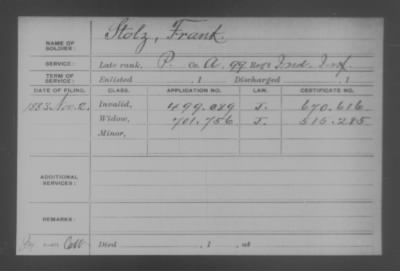 NAME OF SOLDIER: Stolz, Frank.
SERVICE: Late rank, P. Co. A. 99 Reg't Ind. Inf.
TERM OF SERVICE: Enlisted , 1 Discharged , 1
DATE OF FILING. CLASS. APPLICATION NO. LAW. CERTIFICATE NO.
1883. Nov. 12. Invalid, 499.029 J. 670.616
Widow, 701.756 J. 515.285
Minor,
ADDITIONAL SERVICES:
REMARKS:
Died , 1 , at